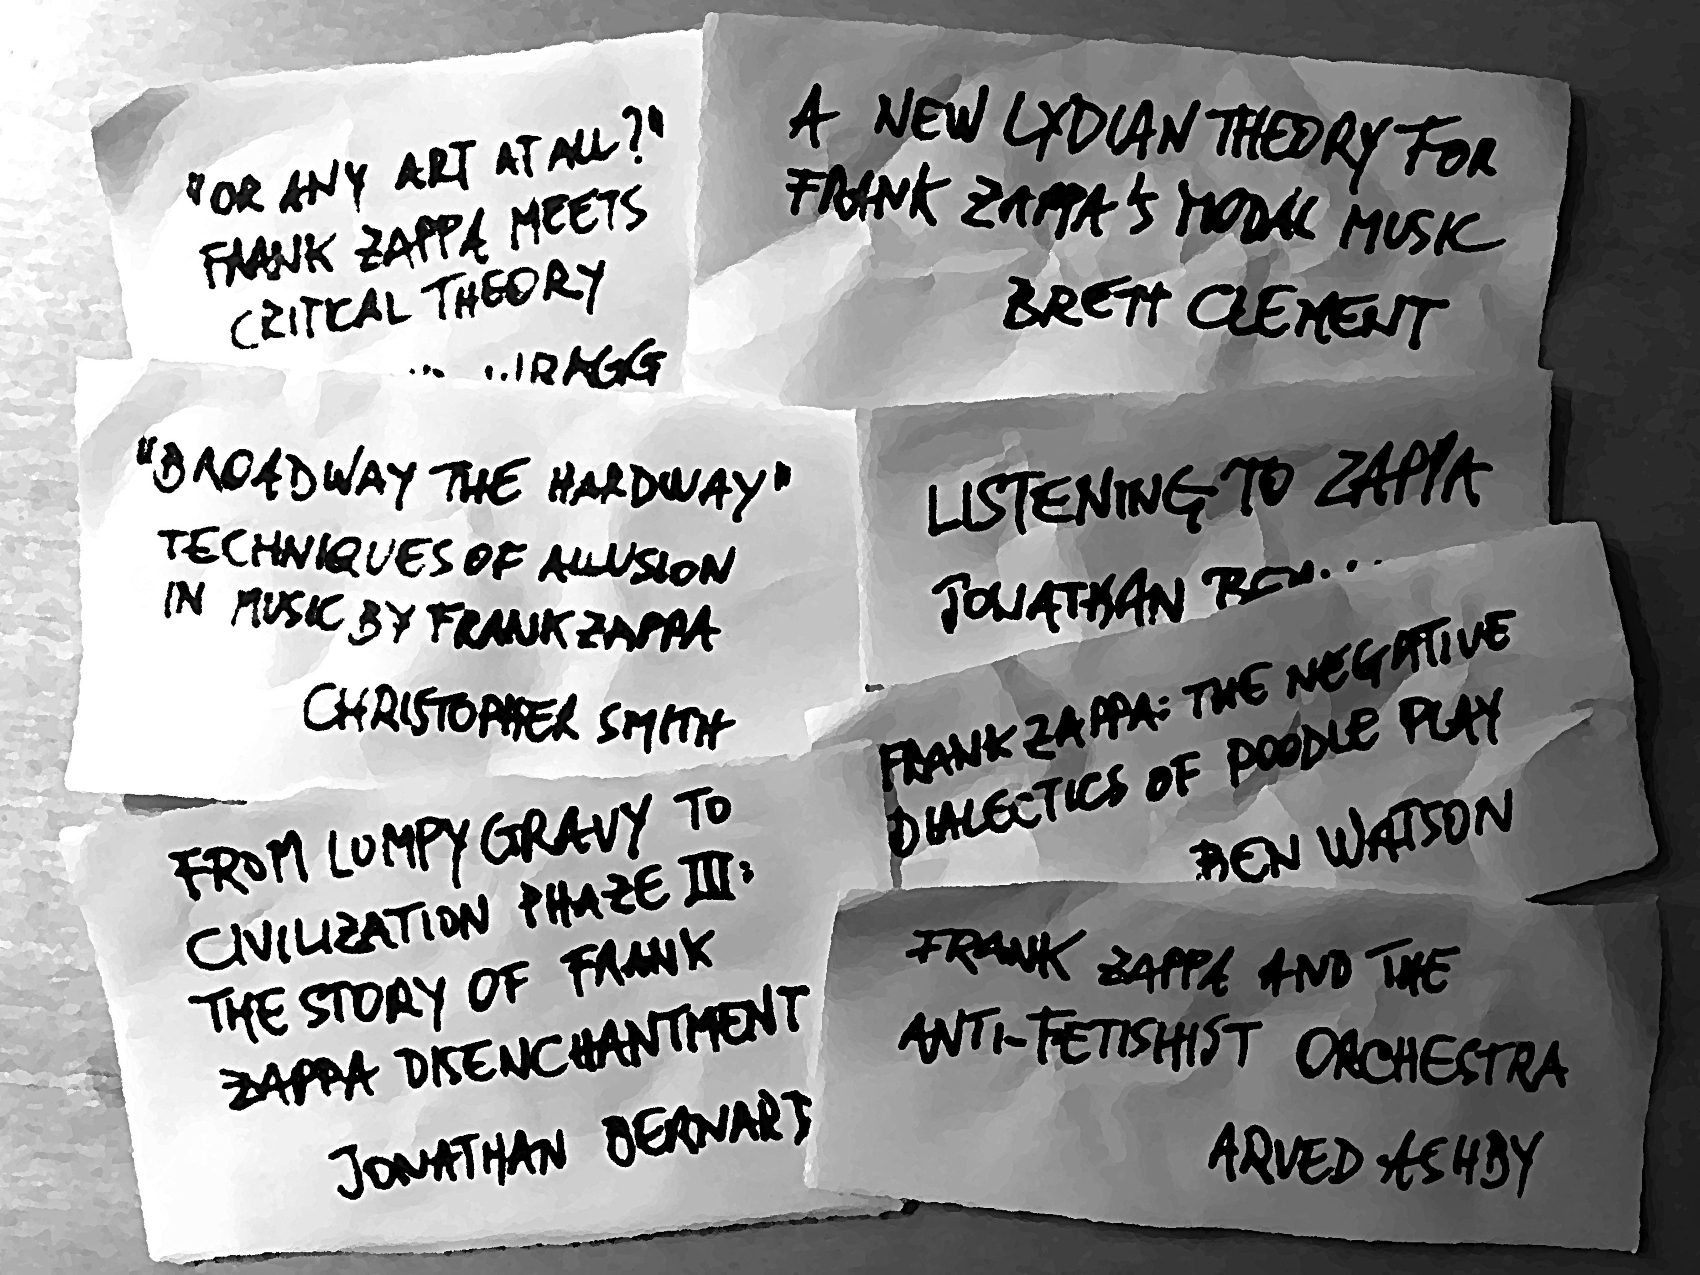 "OR ANY ART AT ALL?"
FRANK ZAPPA MEETS
CRITICAL THEORY
A NEW LYDIAN THEORY FOR
FRANK ZAPPA'S MODAL MUSIC
BRETT CLEMENT
"BROADWAY THE HARDWAY"
TECHNIQUES OF ALLUSION
IN MUSIC BY FRANK ZAPPA
CHRISTOPHER SMITH
LISTENING TO ZAPPA
JONATHAN
FRANK ZAPPA: THE NEGATIVE
DIALECTICS OF POODLE PLAY
BEN WATSON
FROM LUMPY GRAVY TO
CIVILIZATION PHAZE III:
THE STORY OF FRANK
ZAPPA DISENCHANTMENT
JONATHAN BERNARD
FRANK ZAPPA AND THE
ANTI-FETISHIST ORCHESTRA
ARVED ASHBY